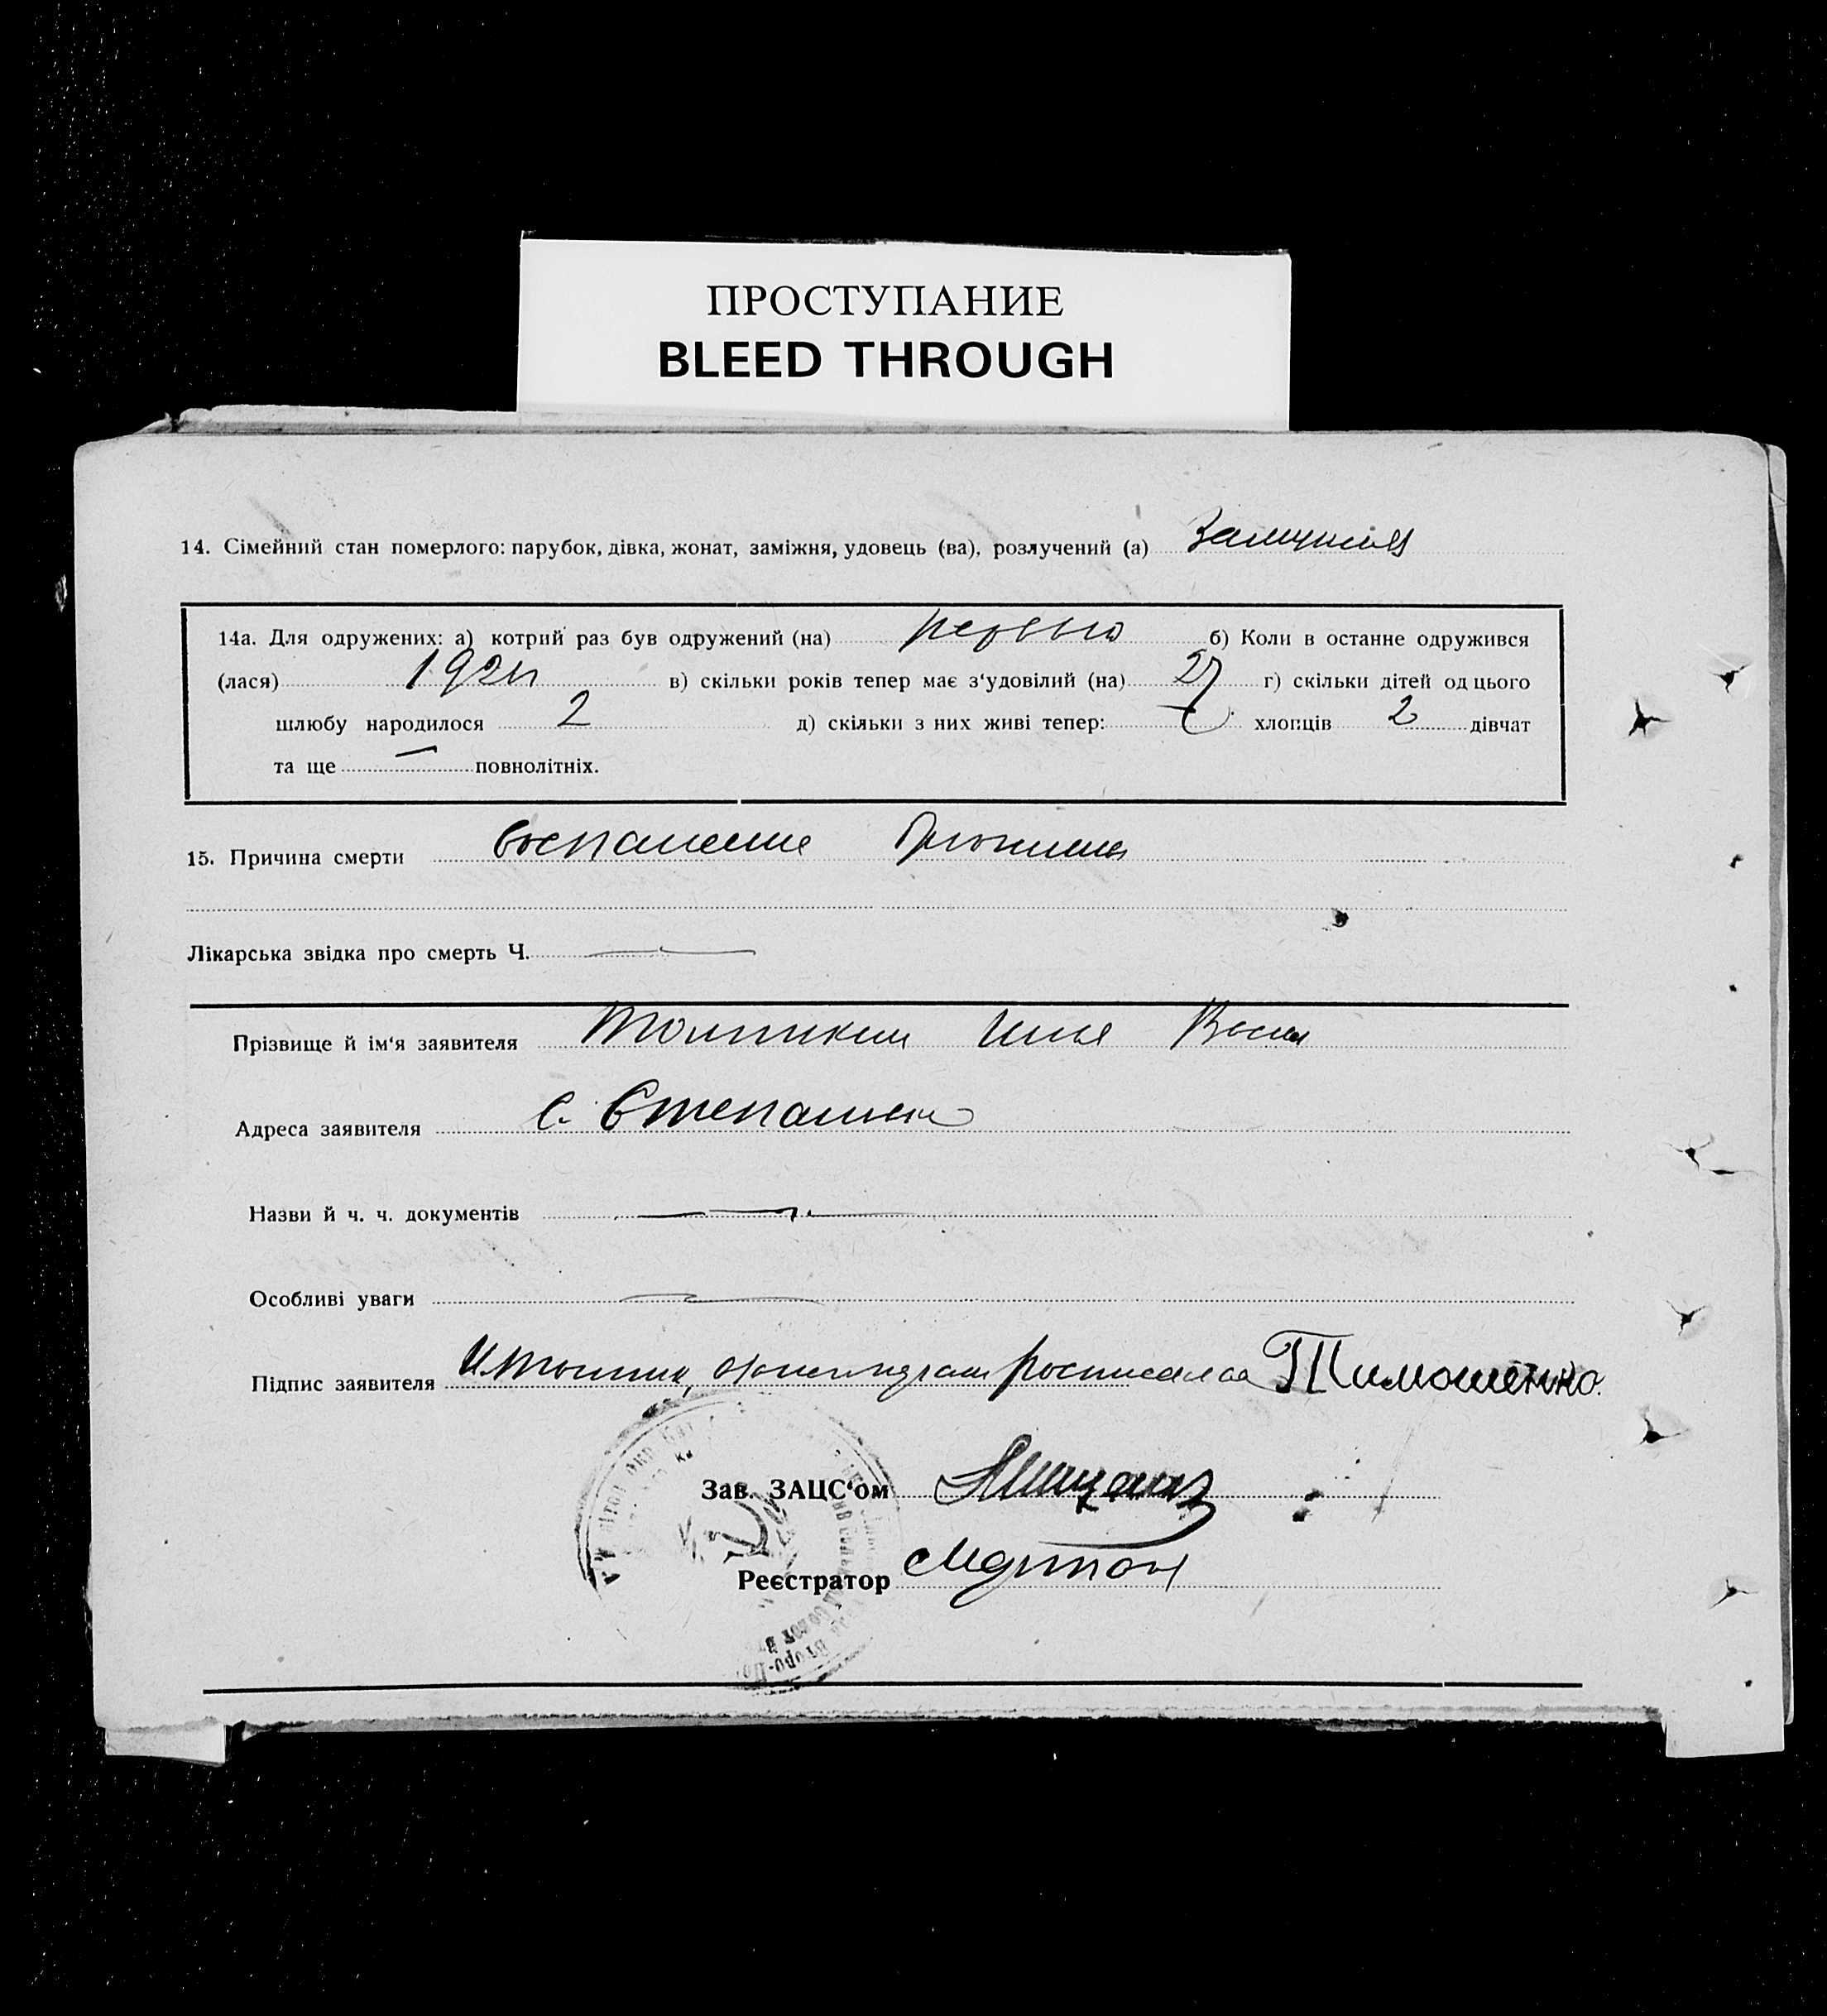 ПРОСТУПАНИЕ
BLEED THROUGH
14. Сімейний стан померлого: парубок, дівка, жонат, заміжня, удовець (ва), розлучений (а)
14а. Для одружених: а) котрий раз був одружений (на) первый б) Коли в останне одружився
(лася) в) скільки років тепер має з'удовілий (на) 27 г) скільки дітей од цього
шлюбу народилося 2 д) скільки з них живі тепер: хлопців 2 дівчат
та ще — повнолітніх.
15. Причина смерти воспаление
Лікарська звідка про смерть Ч. —
Прізвище й ім'я заявителя Илья
Адреса заявителя с. Степановка
Назви й ч. ч. документів —
Особливі уваги —
Підпис заявителя Тимошенко.
Зав. ЗАЦС'ом
Реєстратор